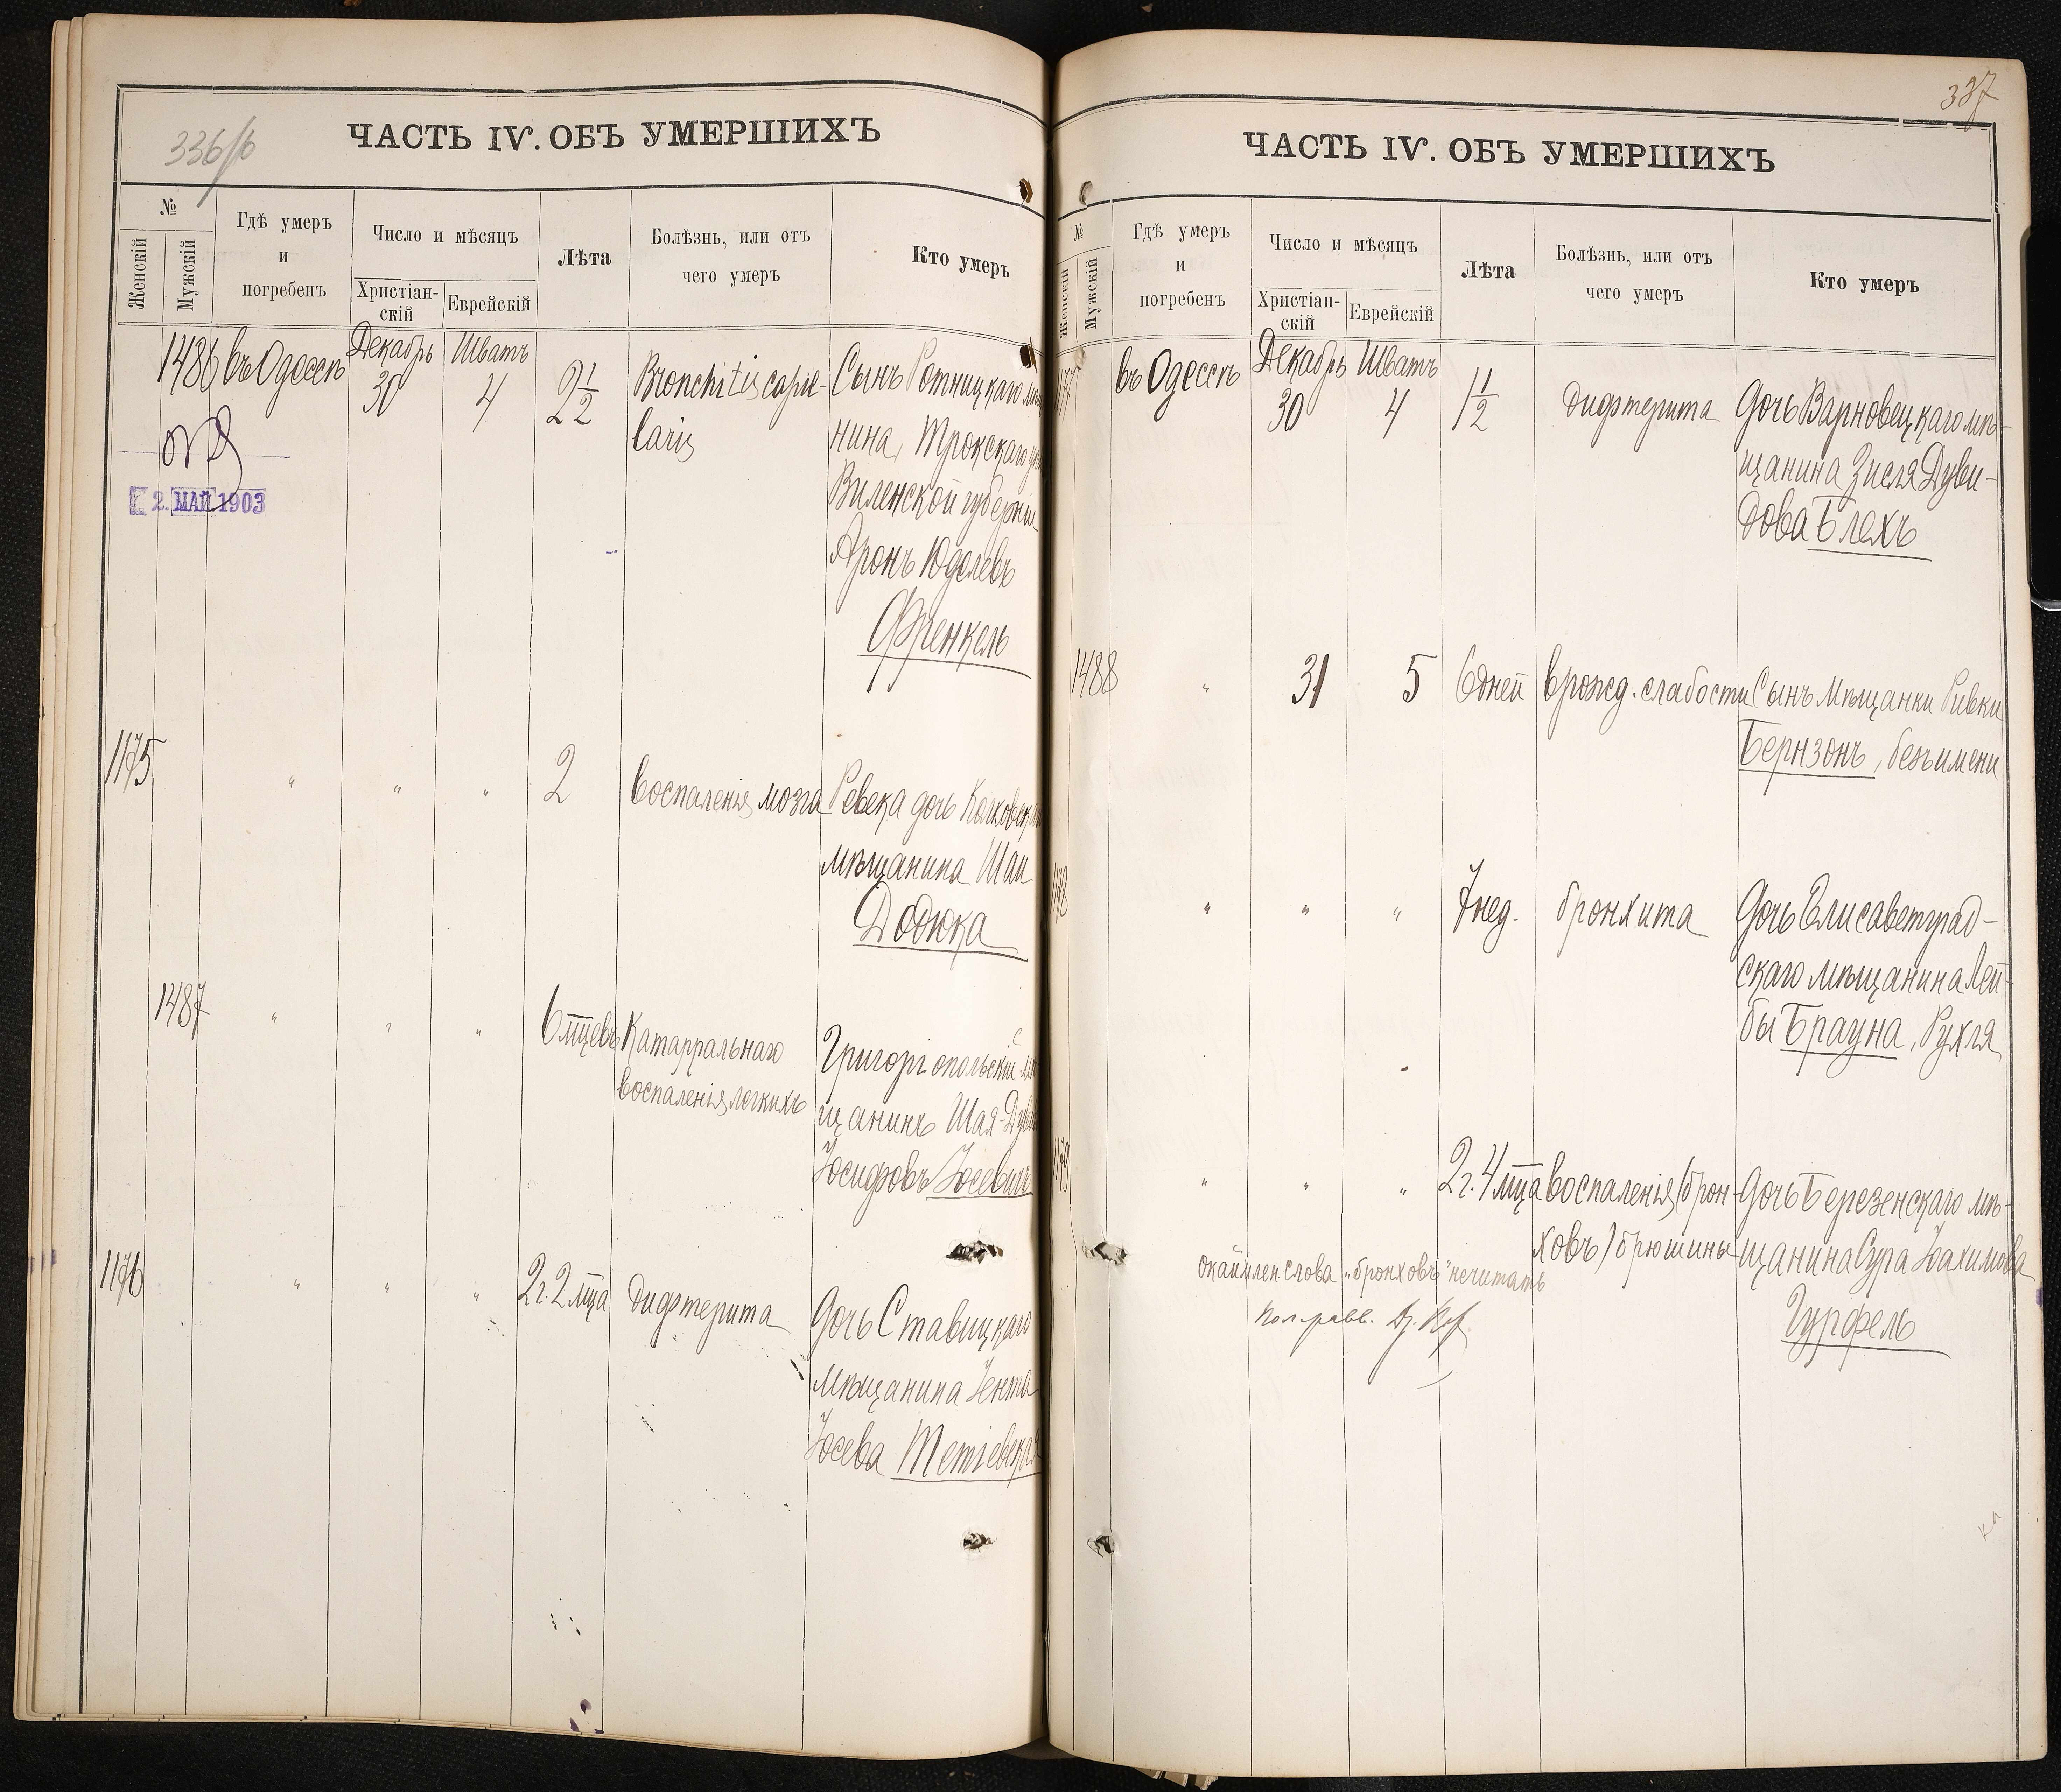 336/б
ЧАСТЬ IV. ОБЪ УМЕРШИХЪ
№
Женскій
Мужскій
Гдѣ умеръ
и
погребенъ
Число и мѣсяцъ
Христіан-
скій
Еврейскій
Лѣта
Болѣзнь, или отъ
чего умеръ
Кто умеръ
1486 въ Одессѣ Декабрь 30 Шватъ 4 2 1/2 Bronchitis capil- Сынъ Ротницкаго
laris нина, Трокскаго
Виленской губерніи
Аронъ Юделевъ
Френкель
2. МАЙ 1903
1175 " " " 2 воспаленія мозга Ревека дочь
мѣщанина Шаи
Додюка
1487 " " " 6 мцевъ Катарральнаго Григоріопольскій мѣ
воспаленія легкихъ щанинъ Шая-
Іосифовъ Іосевичъ
1176 " " " 2 г. 2 мца дифтерита Дочь Ставицкаго
мѣщанина Іента
Іосева Тетіевская
337
ЧАСТЬ IV. ОБЪ УМЕРШИХЪ
№
Женскій
Мужскій
Гдѣ умеръ
и
погребенъ
Число и мѣсяцъ
Христіан-
скій
Еврейскій
Лѣта
Болѣзнь, или отъ
чего умеръ
Кто умеръ
въ Одессѣ Декабрь 30 Шватъ 4 1 1/2 дифтерита Дочь Варновецкаго мѣ-
щанина Зисля Дуви-
дова Блехъ
1488 " 31 5 6 дней врожд. слабости Сынъ мѣщанки Ривки
Бернзонъ, безъ имени
" " " 7 нед. бронхита Дочь Елисаветград-
скаго мѣщанина Лей-
бы Брауна, Рухля
" " " 2 г. 4 мца воспаленія (брон- Дочь Березенскаго мѣ-
ховъ) брюшины щанина Сура Іоахимова
Гурфель
окаймлен. слова "бронховъ" нечитать